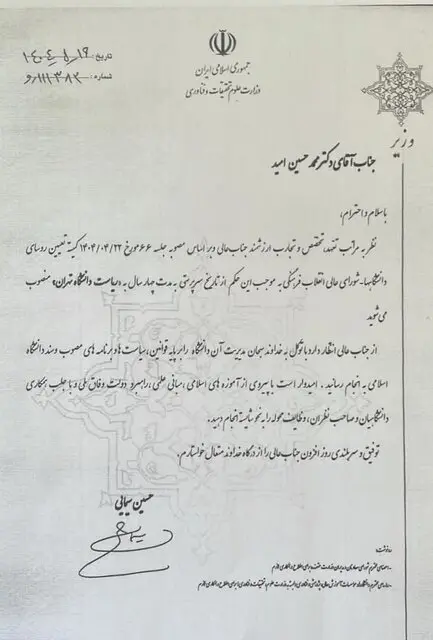 تاریخ: ۱۴۰۴,۵,۱۹
شماره: ۱۱۱۳۸۲/و
جمهوری اسلامی ایران
وزارت علوم تحقیقات و فناوری
وزیر
جناب آقای دکتر محمد حسین امید
با سلام و احترام؛
نظر به مراتب تعهد، تخصص و تجارب ارزشمند جناب‌عالی و بر اساس مصوبه جلسه ۶۶ مورخ ۱۴۰۴/۰۴/۲۲ کمیته تعیین روسای
دانشگاه‌ها، شورای عالی انقلاب فرهنگی به موجب این حکم از تاریخ سرپرستی به مدت چهار سال به «ریاست دانشگاه تهران» منصوب
می‌شوید
از جناب‌عالی انتظار دارد با توکل به خداوند سبحان مدیریت آن دانشگاه را بر پایه قوانین، سیاست‌ها و برنامه های مصوب و سند دانشگاه
اسلامی به انجام رسانید. امیدوار است با پیروی از آموزه های اسلامی، مبانی علمی، راهبرد دولت وفاق ملی و با جلب همکاری
دانشگاهیان و صاحب نظران، وظایف محوله را به نحو شایسته انجام دهید.
توفیق و سربلندی روز افزون جناب‌عالی را از درگاه خداوند متعال خواستارم.
حسین سیمایی
رونوشت: